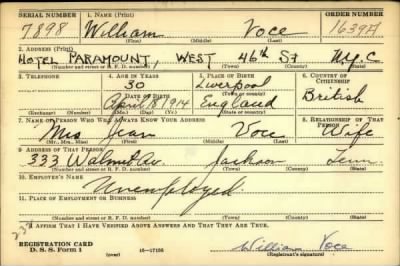 SERIAL NUMBER 1. NAME (Print) ORDER NUMBER
7898 William Voce 1639A
(First) (Middle) (Last)
2. ADDRESS (Print)
HOTEL PARAMOUNT, WEST 46th ST N.Y.C
(Number and street or R. F. D. number) (Town) (County) (State)
3. TELEPHONE 4. AGE IN YEARS 5. PLACE OF BIRTH 6. COUNTRY OF CITIZENSHIP
30 Liverpool
DATE OF BIRTH (Town or county)
April 8 1914 England British
(Exchange) (Number) (Mo.) (Day) (Yr.) (State or country)
7. NAME OF PERSON WHO WILL ALWAYS KNOW YOUR ADDRESS 8. RELATIONSHIP OF THAT PERSON
Mrs Jean Voce Wife
(Mr., Mrs., Miss) (First) (Middle) (Last)
9. ADDRESS OF THAT PERSON
333 Walnut Av. Jackson Tenn.
(Number and street or R. F. D. number) (Town) (County) (State)
10. EMPLOYER'S NAME
Unemployed.
11. PLACE OF EMPLOYMENT OR BUSINESS
(Number and street or R. F. D. number) (Town) (County) (State)
I AFFIRM THAT I HAVE VERIFIED ABOVE ANSWERS AND THAT THEY ARE TRUE.
REGISTRATION CARD
D. S. S. Form 1 (over) 16—17105 William Voce
(Registrant's signature)